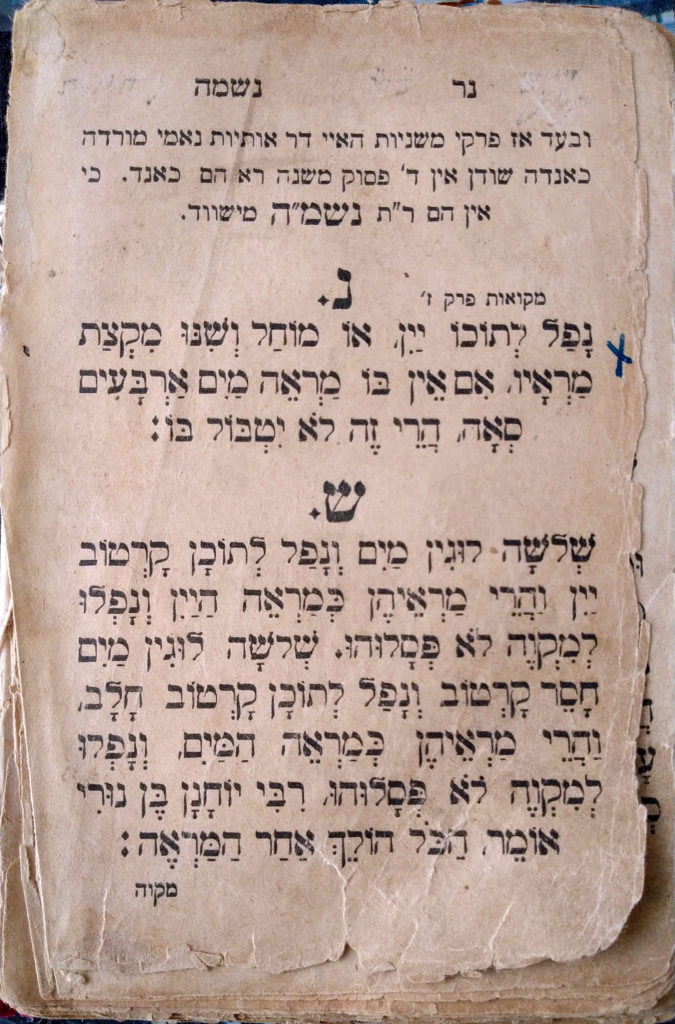 נר נשמה
ובעד אז פרקי משניות האיי דר אותיות נאמי מורדה
כאנדה שודן אין ד' פסוק משנה רא הם כאנד. כי
אין הם ר"ת נשמ״ה מישווד.
נ.
מקואות פרק ז'
נָפַל לְתוֹכוֹ יַיִן, אוֹ מוֹחַל וְשִׁנּוּ מִקְצָת
מַרְאָיו, אִם אֵין בּוֹ מַרְאֵה מַיִם אַרְבָּעִים
סְאָה, הֲרֵי זֶה לֹא יִטְבּוֹל בּוֹ:
ש.
שְׁלשָׁה לוּגִין מַיִם וְנָפַל לְתוֹכָן קָרְטוֹב
יַיִן וַהֲרֵי מַרְאֵיהֶן כְּמַרְאֵה הַיַּיִן וְנָפְלוּ
לְמִקְוֶה לֹא פְּסָלוּהוּ. שְׁלשָׁה לוּגִין מַיִם
חָסֵר קָרְטוֹב וְנָפַל לְתוֹכָן קָרְטוֹב חָלָב,
וַהֲרֵי מַרְאֵיהֶן כְּמַרְאֵה הַמַּיִם, וְנָפְלוּ
לְמִקְוֶה לֹא פְּסָלוּהוּ, רִבִּי יוֹחָנָן בֶּן נוּרִי
אוֹמֵר, הַכֹּל הוֹלֵךְ אַחַר הַמַּרְאֶה:
מקוה